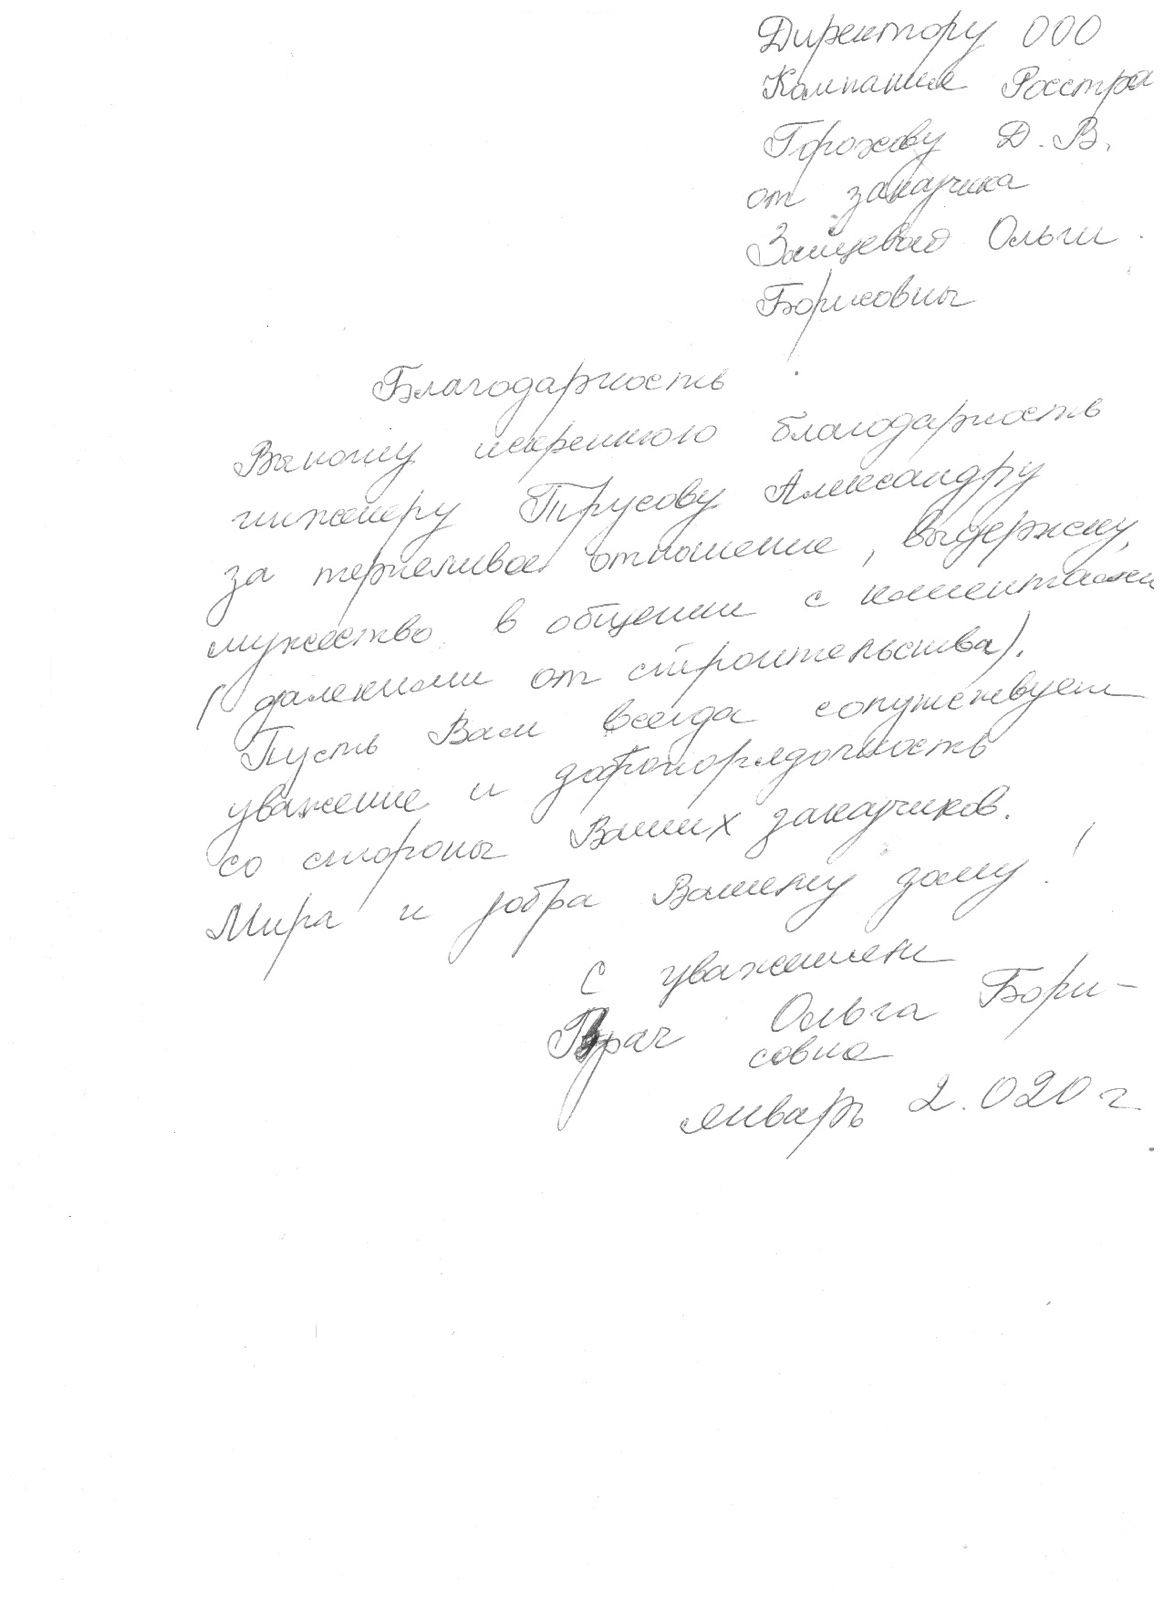 Директору ООО
Компания Росстра
Горохову Д.В.
от заказчика
Зайцевой Ольги
Борисовны
Благодарность
Выношу искреннюю благодарность
инженеру Трусову Александру
за терпеливое отношение, выдержку,
мужество в общении с клиентами
(далекими от строительства).
Пусть Вам всегда сопутствует
уважение и добропорядочность
со стороны Ваших заказчиков.
Мира и добра Вашему дому!
С уважением
Врач Ольга Бори-
совна
январь 2.020 г